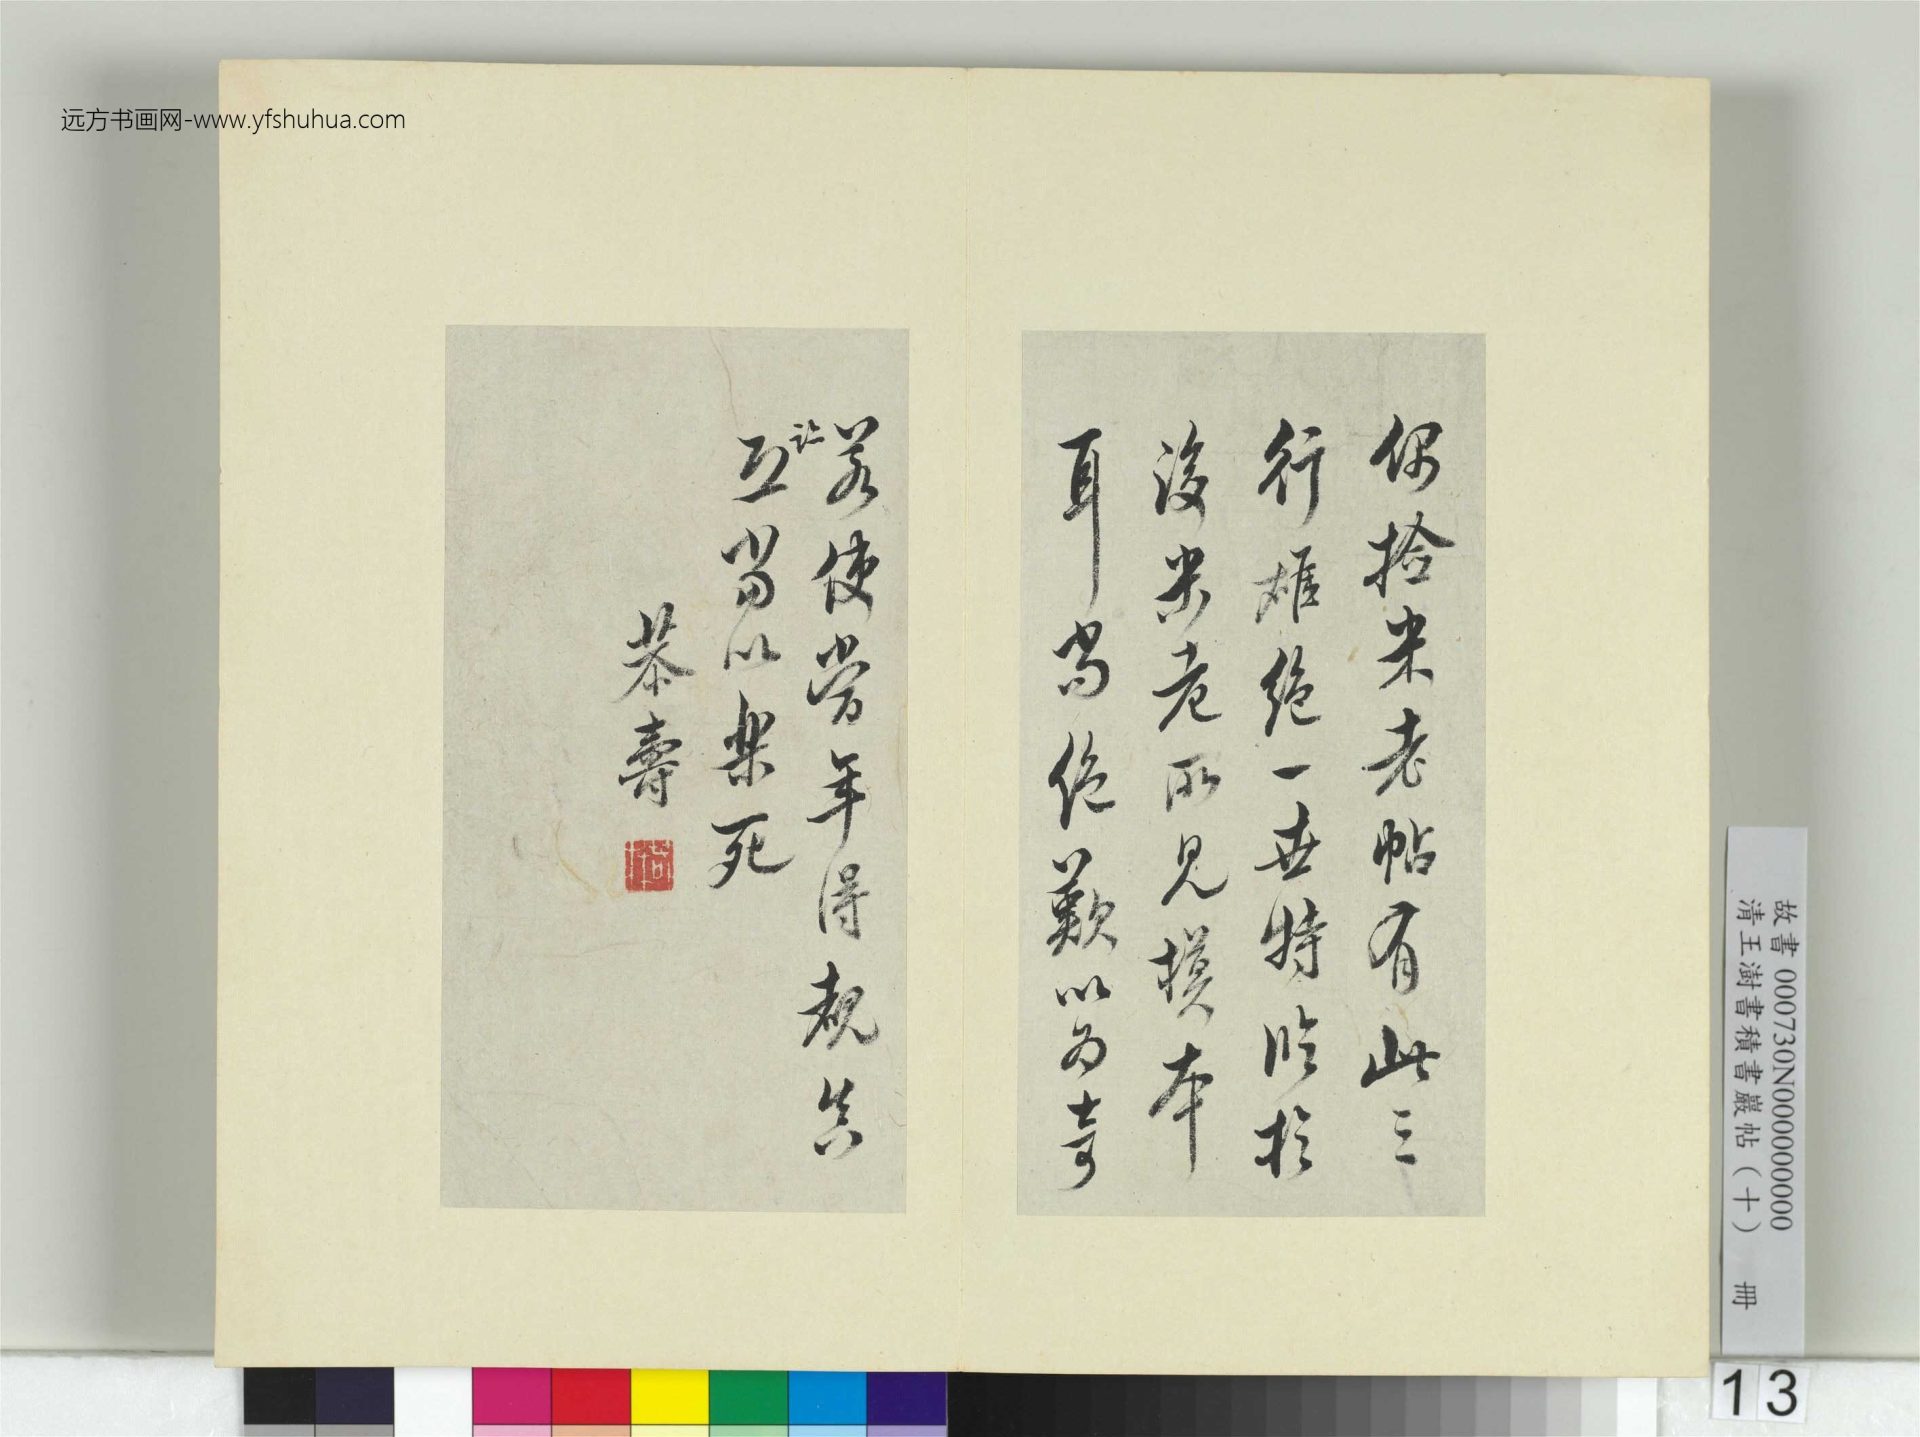 远方书画网-www.yfshuhua.com
偶拾米老帖有此三
行雄絶一世特臨於
後米老所見摸本
耳尚絶歎以為奇
若使當年得覩真
迹
正當以樂死
恭壽
故書 000730N000000000
清王澍書積書巖帖（十） 冊
13